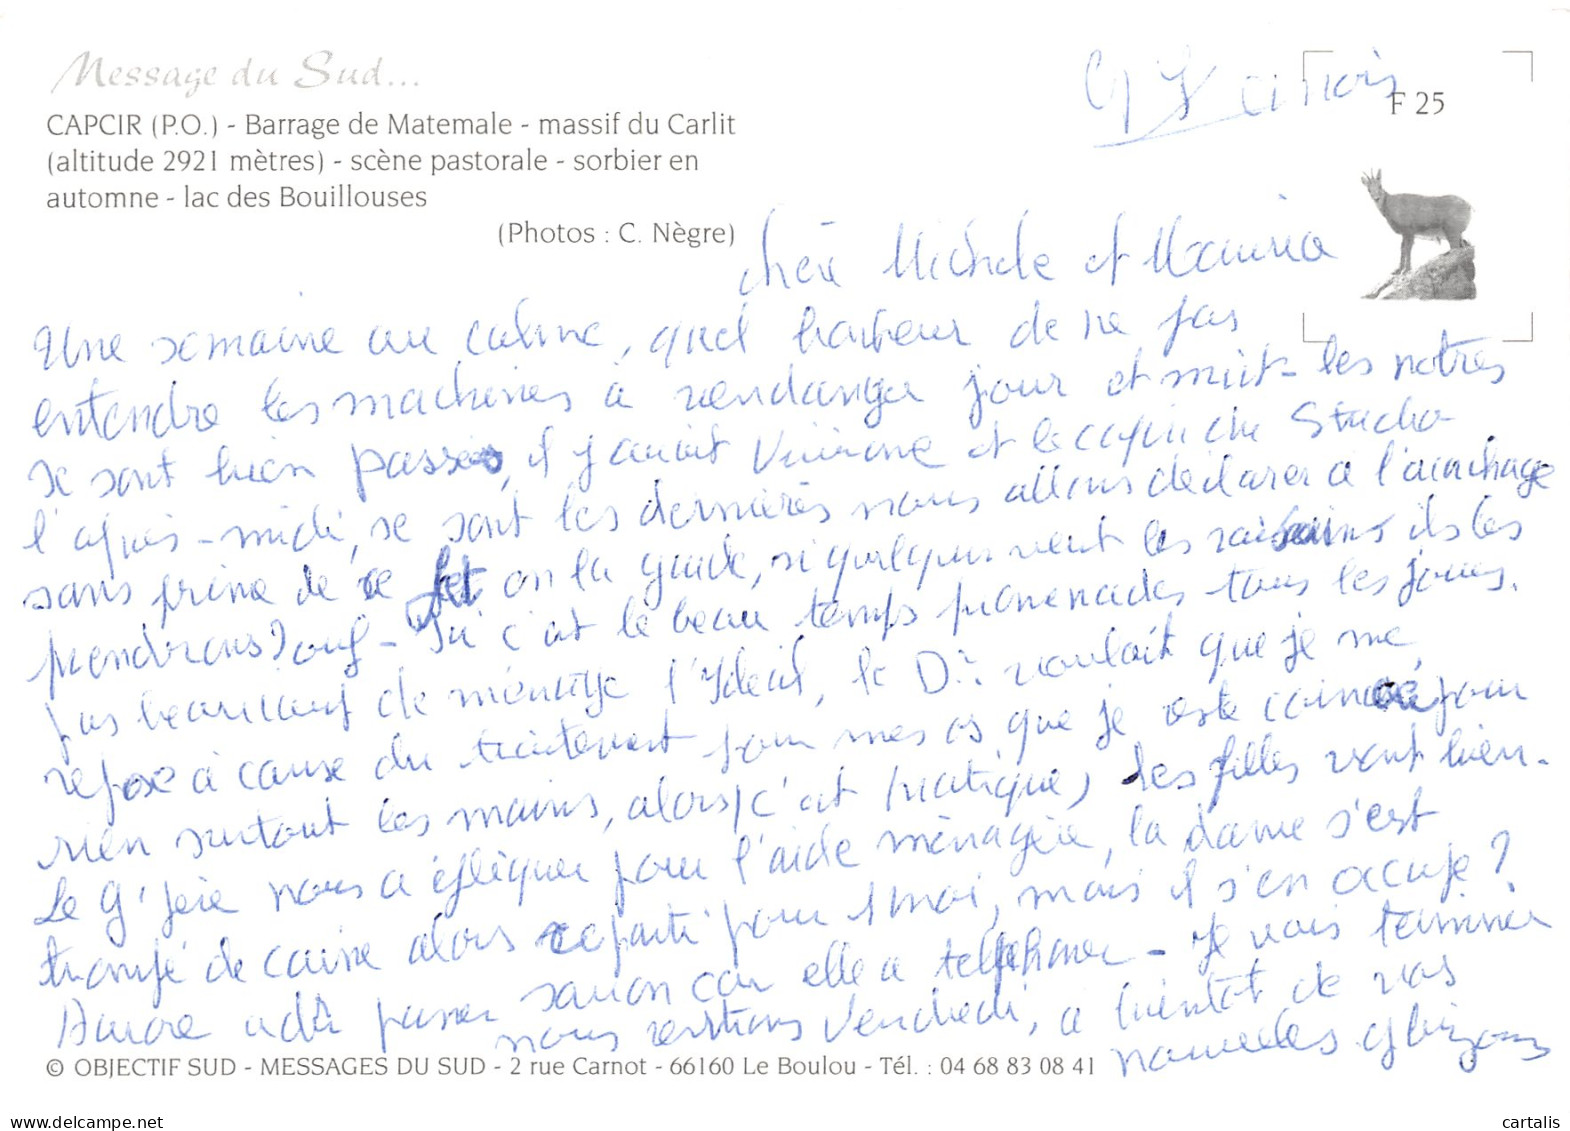 Message du Sud...
CAPCIR (P.O.) - Barrage de Matemale - massif du Carlit
(altitude 2921 mètres) - scène pastorale - sorbier en
automne - lac des Bouillouses
(Photos : C. Nègre)
F 25
chère Michele et
Une semaine au calme, quel bonheur de ne pas
entendre les machines à vendanger jour et nuit - les notres
se sont bien passées, il y avait Viviane et le copin de
l'après-midi, se sont les dernières nous allons déclarer à l'arrachage
sans prime de ce fet on la guide, si quelquun veut les raisins ils les
prendrons? ouf - Ici c'est le beau temps promenades tous les jours.
pas beaucoup de ménage l'Ideal, le Dr voulait que je me
repose à cause du traitement pour mes os que je reste coincée pour
rien surtout les mains, alors c'est pratique, les filles vont bien.
Le G' père nous a éfliquer pour l'aide ménagère, la dame s'est
trompé de caisse alors reparti pour 1 moi, mais il s'en occupe?
Aurore a dû passer savon car elle a telephoner - Je vais terminer
nous rentrons Vendredi, a bientot de vos
nouvelles
© OBJECTIF SUD - MESSAGES DU SUD - 2 rue Carnot - 66160 Le Boulou - Tél. : 04 68 83 08 41
www.delcampe.net
cartalis